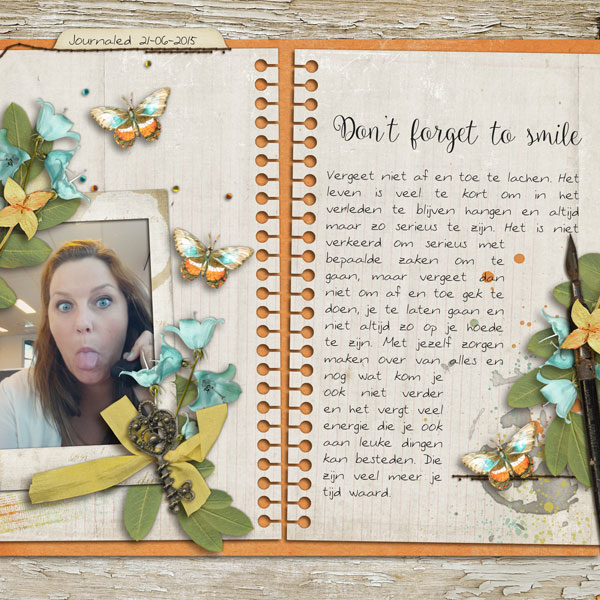 Journaled 21-06-2015
Don't forget to smile
Vergeet niet af en toe te lachen. Het
leven is veel te kort om in het
verleden te blijven hangen en altijd
maar zo serieus te zijn. Het is niet
verkeerd om serieus met
bepaalde zaken om te
gaan, maar vergeet dan
niet om af en toe gek te
doen, je te laten gaan en
niet altijd zo op je hoede
te zijn. Met jezelf zorgen
maken over van alles en
nog wat kom je
ook niet verder
en het vergt veel
energie die je ook
aan leuke dingen
kan besteden. Die
zijn veel meer je
tijd waard.